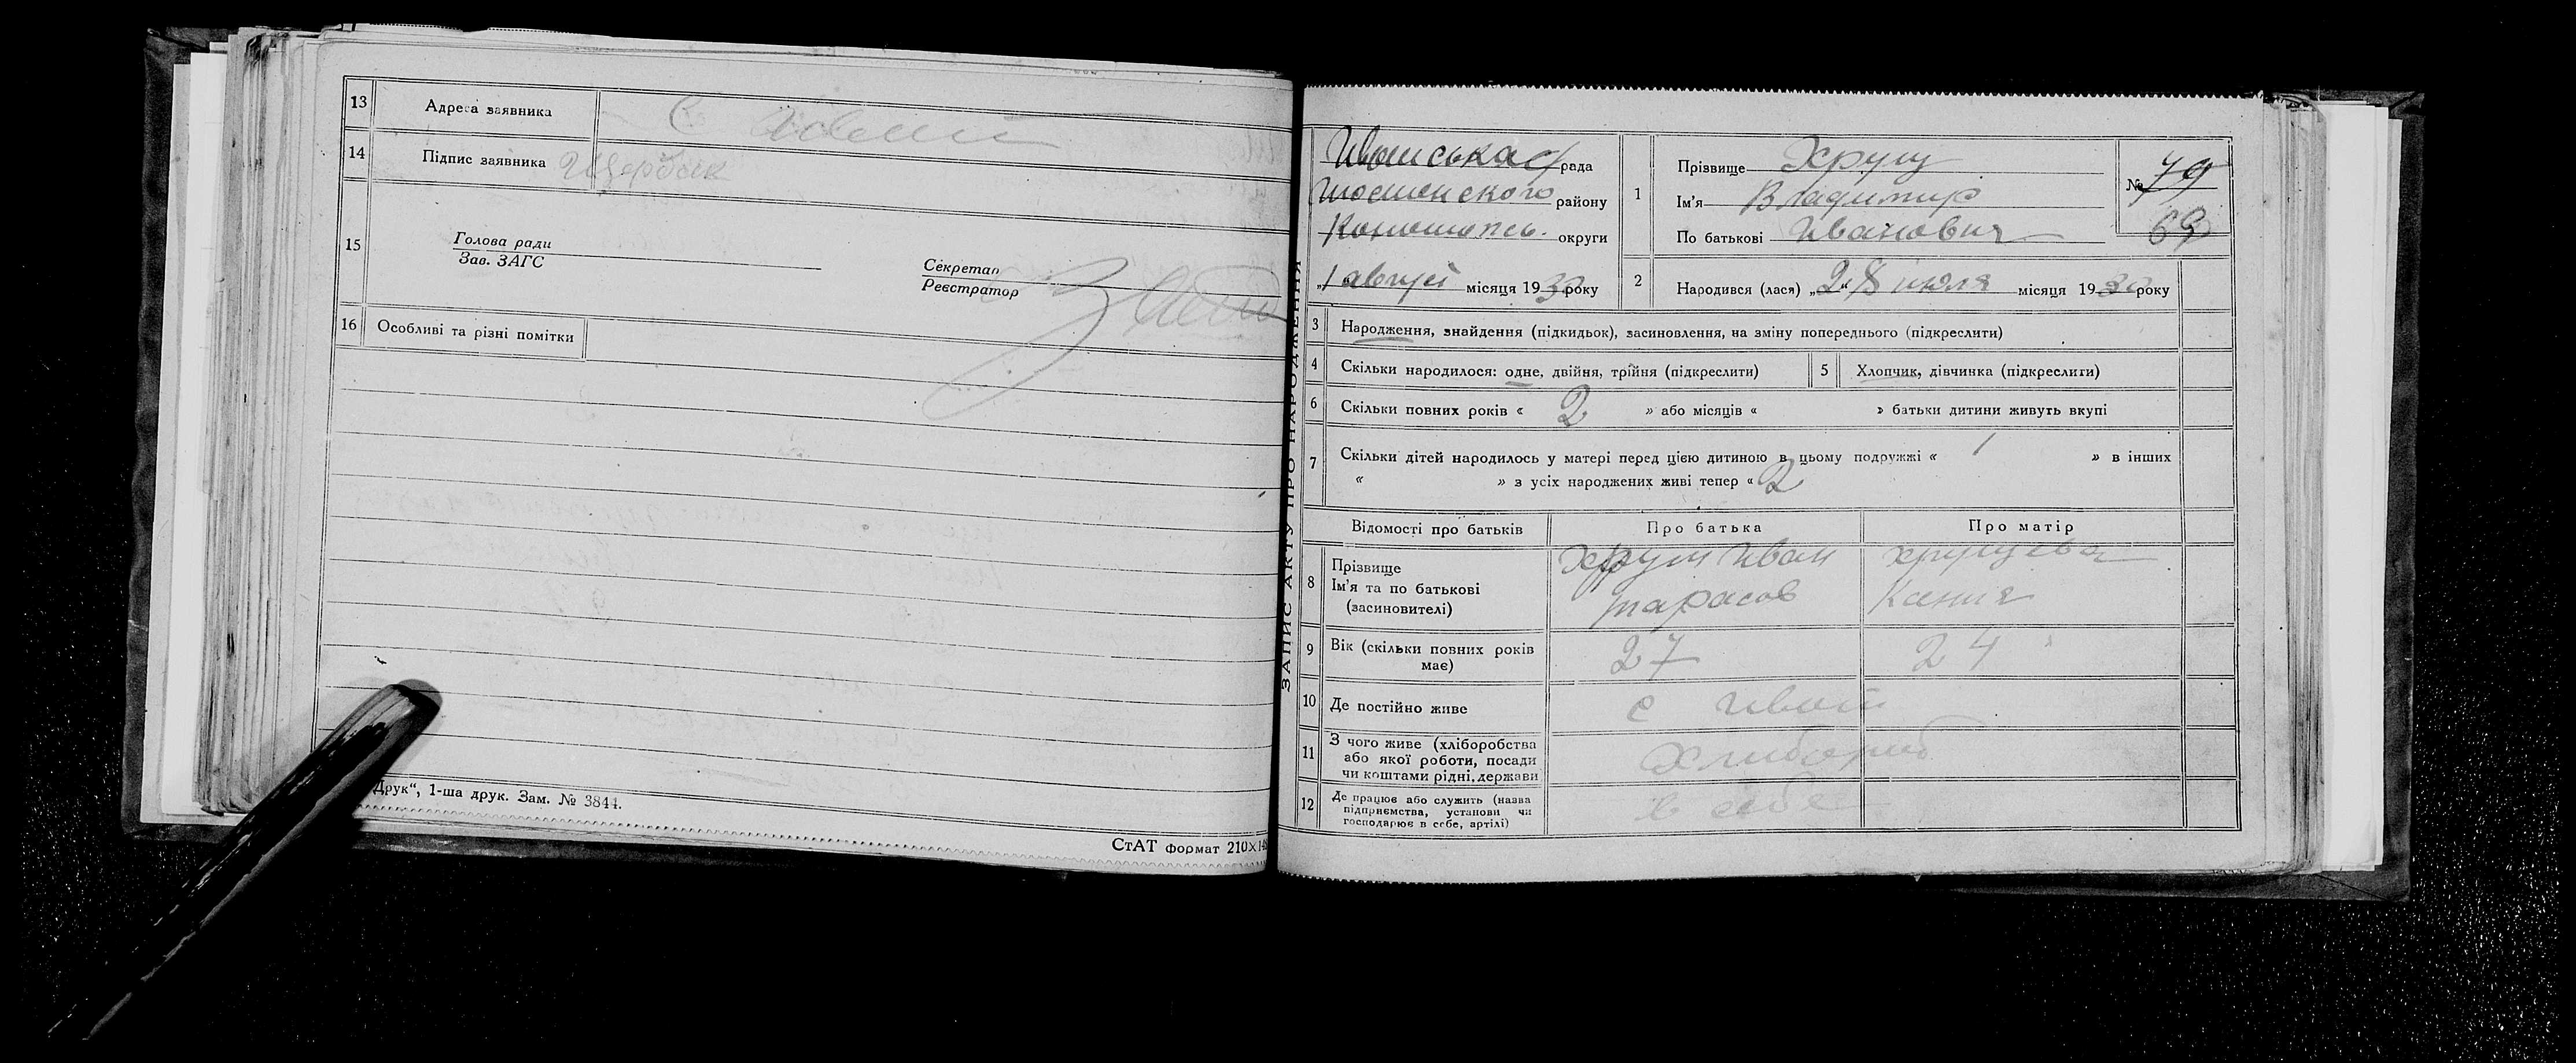 13 Адреса заявника С
14 Підпис заявника Щербак
15 Голова ради
Зав. ЗАГС
Секретар
Реєстратор
16 Особливі та різні помітки
Друк“, 1-ша друк. Зам. № 3844.
СтАТ формат 210×148
ЗАПИС АКТУ ПРО НАРОДЖЕННЯ
рада
району
округи
„1 август місяця 1930 року
1 Прізвище Хрущ
Ім'я Владимир
По батькові Иванович
№ 79
69
2 Народився (лася) „28 июля місяця 1930 року
3 Народження, знайдення (підкидьок), засиновлення, на зміну попереднього (підкреслити)
4 Скільки народилося: одне, двійня, трійня (підкреслити)
5 Хлопчик, дівчинка (підкреслити)
6 Скільки повних років « 2 » або місяців « » батьки дитини живуть вкупі
7 Скільки дітей народилось у матері перед цією дитиною в цьому подружжі « 1 » в інших
« » з усіх народжених живі тепер « 2
Відомості про батьків Про батька Про матір
8 Прізвище
Ім'я та по батькові
(засиновителі)
Хрущ Иван
Тарасов
Хрущева
9 Вік (скільки повних років
має)
27 24
10 Де постійно живе с
11 З чого живе (хліборобства
або якої роботи, посади
чи коштами рідні, держави
Хлибороб
12 Де працює або служить (назва
підприємства, установи чи
господарює в себе, артілі)
в себе